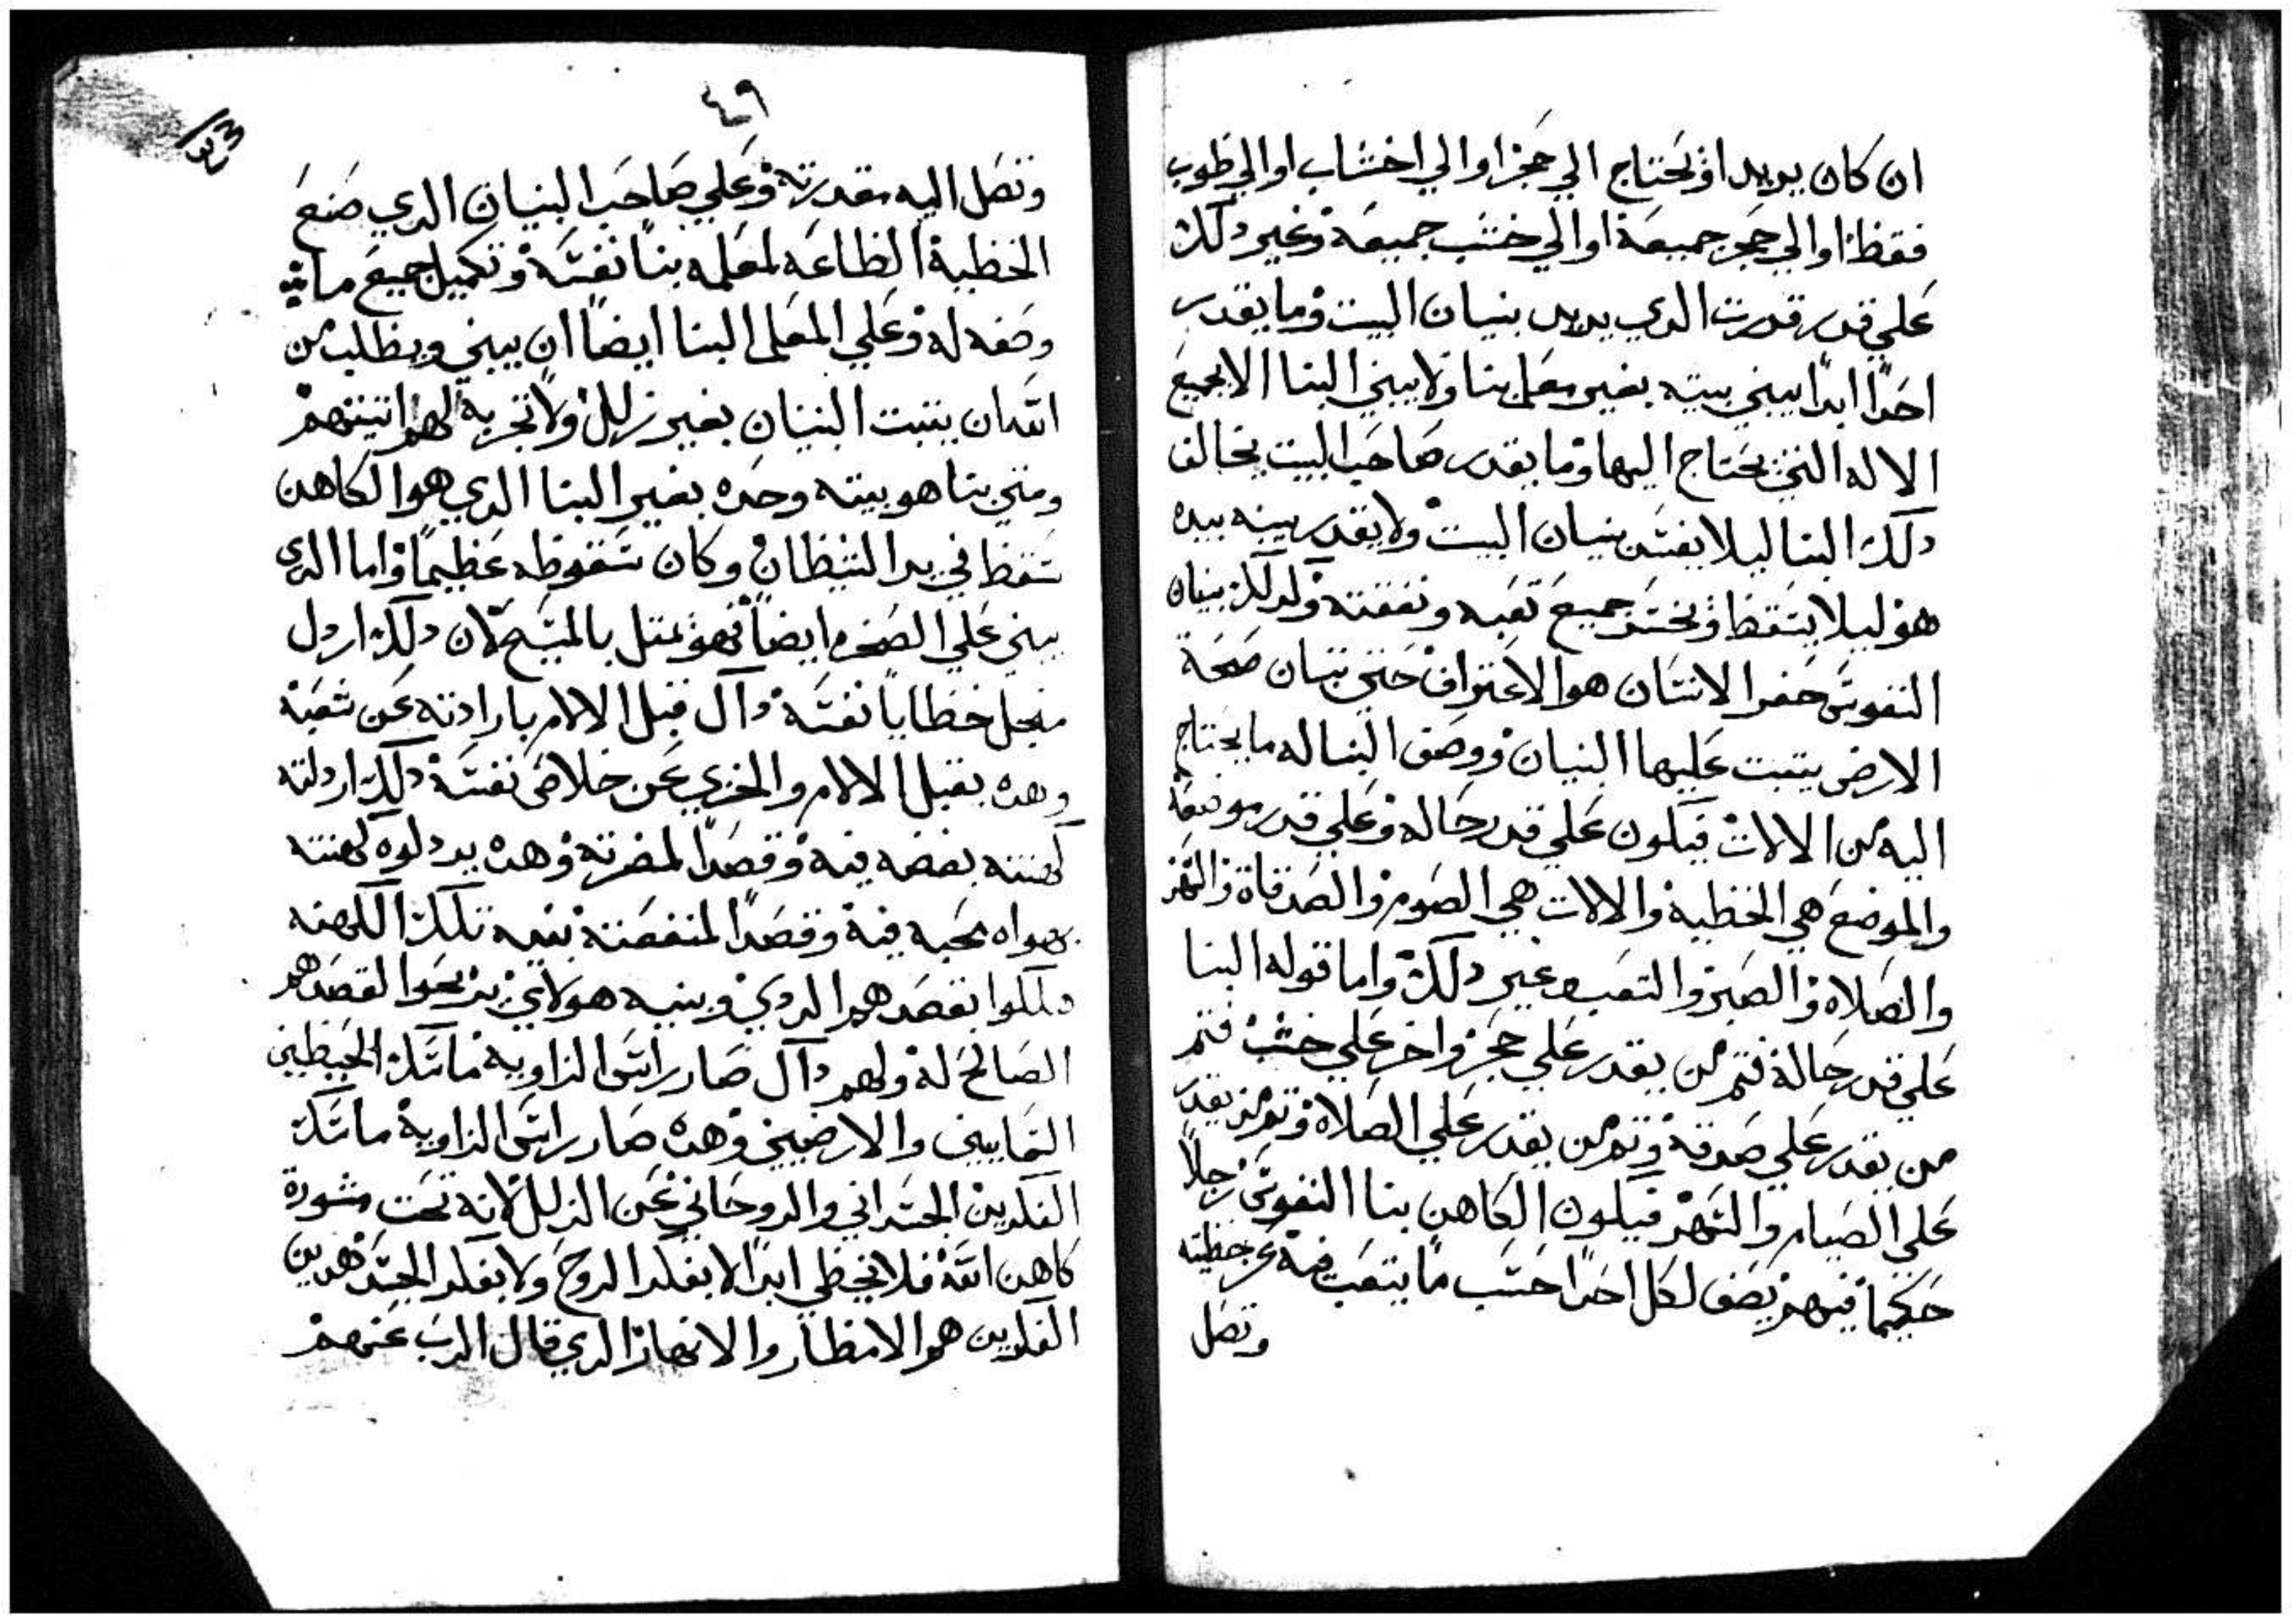 ان كان يريد او يحتاج الي حجر او الي اخشاب او الي طوب
فقط او الي حجر جميعه او الي خشب جميعه وغير دلك
علي قدر قدرت الدي يريد بنيان البيت وما يقدر
احدًا ابدًا يبني بيته بغير معلم بنا ولا يبني البنا الا بجميع
الاله التي يحتاج اليها وما يقدر صاحب البيت يخالف
دلك البنا ليلا يفسد بنيان البيت ولا يقدر يبنيه بيده
هو ليلا يسقط ويخسر جميع تعبه ونفقته ولدلك بنيان
النفوس حفر الانسان هو الاعتراف حتي تبان صحة
الارض يتبت عليها البنيان ووصف البنا له ما يحتاج
اليه من الالات فيكون علي قدر حاله وعلي قدر موضعه
والموضع هي الخطية والالات هي الصوم والصدقاة والسهر
والصلاه والصبر والتعب وغير دلك واما قوله البنا
علي قدر حاله فتم من يقدر علي حجر واخر علي خشب فتم
من يقدر علي صدقة وتم من يقدر علي الصلاة وتم من يقدر
علي الصيام والسهر فيكون الكاهن بنا النفوس رجلاً
حكيمًا فيهم يصف لكل احدًا حسب ما يتعب فيه عن خطيته
وتصل
٤٩
وتصل اليه مقدرته وعلي صاحب البنيان الدي صنع
الخطية الطاعه لمعلمه بنا نفسه وتكميل جميع ما
وصفه له وعلي المعلم البنا ايضًا ان يبني ويطلب من
الله ان يتبت البنيان بغير زلل ولا تجربه لهم اتنينهم
ومتي بنا هو بيته وحده بغير البنا الدي هو الكاهن
سقط في يد الشيطان وكان سقوطه عظيمًا واما الدي
يبني علي الصخره ايضًا فهو يمتل بالمسيح لان دلك اردل
منجل خطايا نفسه داك قبل الالام بارادته عن شعبه
وهده يقبل الالام والخزي عن خلاص نفسه دلك اردلته
كهنته بغضه فيه وقصدًا لمضرته وهده يردلوه كهنته
بهواه محبه فيه وقصدًا لمنفعته بنيه تلك الكهنه
هلكوا بقصدهم الردي وبنيه هولاي يربحوا لقصدهم
الصالح له ولهم داك صار راس الزاويه ماسك الحيطين
السماييني والارضيين وهده صار راس الزاوية ماسك
الفكرين الجسداني والروحاني عن الزلل لانه تحت مشورة
كاهن الله فلا يخطي ابدًا لا بفكر الروح ولا بفكر الجسد هدين
الفكرين هو الامطار والانهار الدي قال الرب عنهم